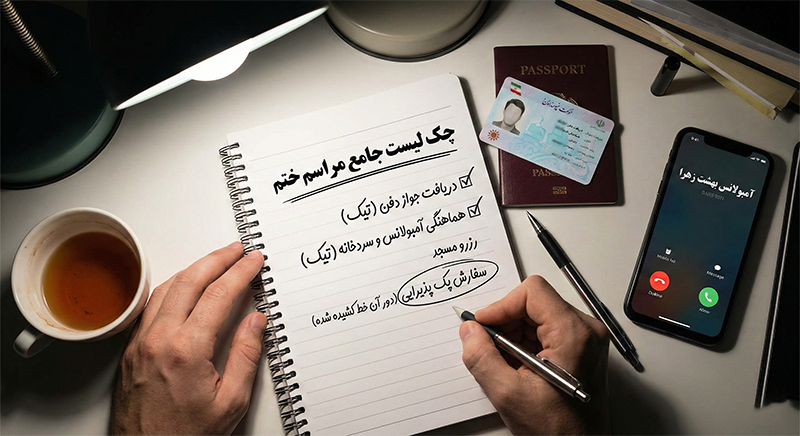 چک لیست جامع مراسم ختم
دریافت جواز دفن (تیک)
هماهنگی آمبولانس و سردخانه (تیک)
رزرو مسجد
سفارش پک پذیرایی (دور آن خط کشیده شده)
PASSPORT
آمبولانس بهشت زهرا
Message